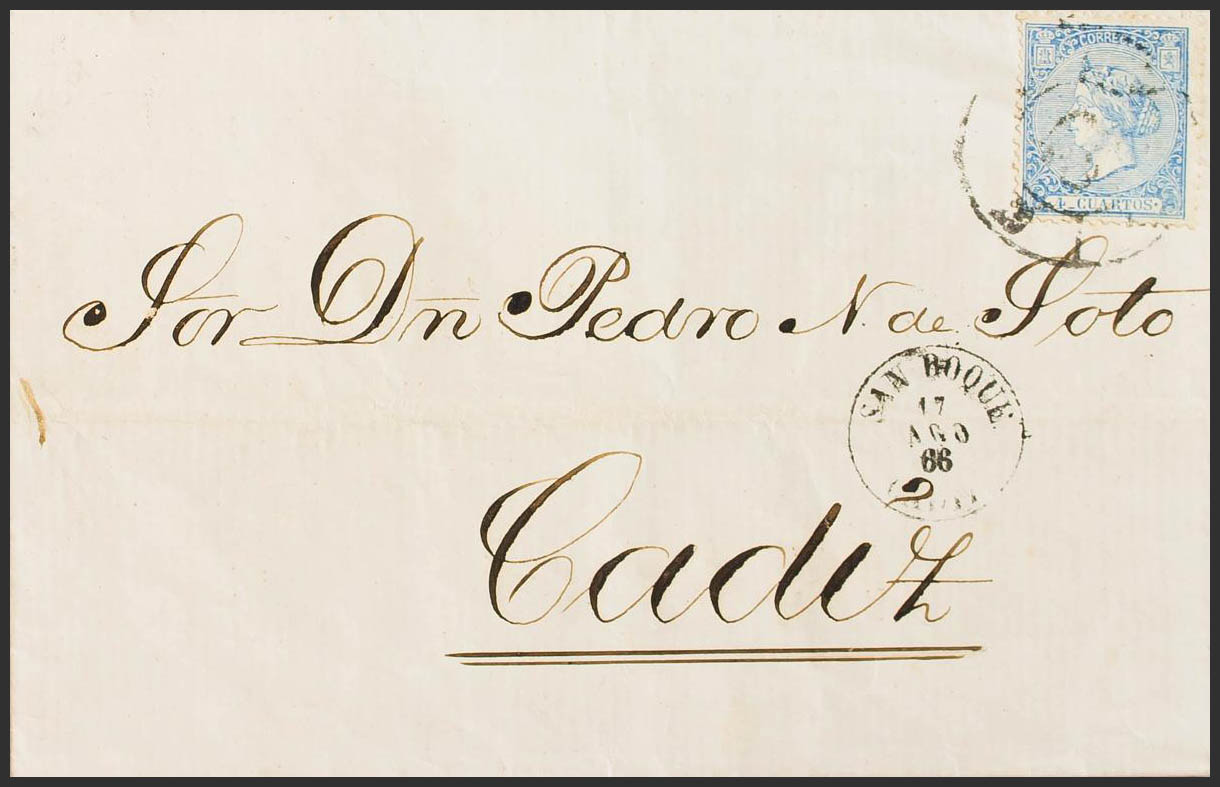 CORREOS
4 CUARTOS.
Sor Dn Pedro N. de Soto
SAN ROQUE
17
AGO
66
Cadiz